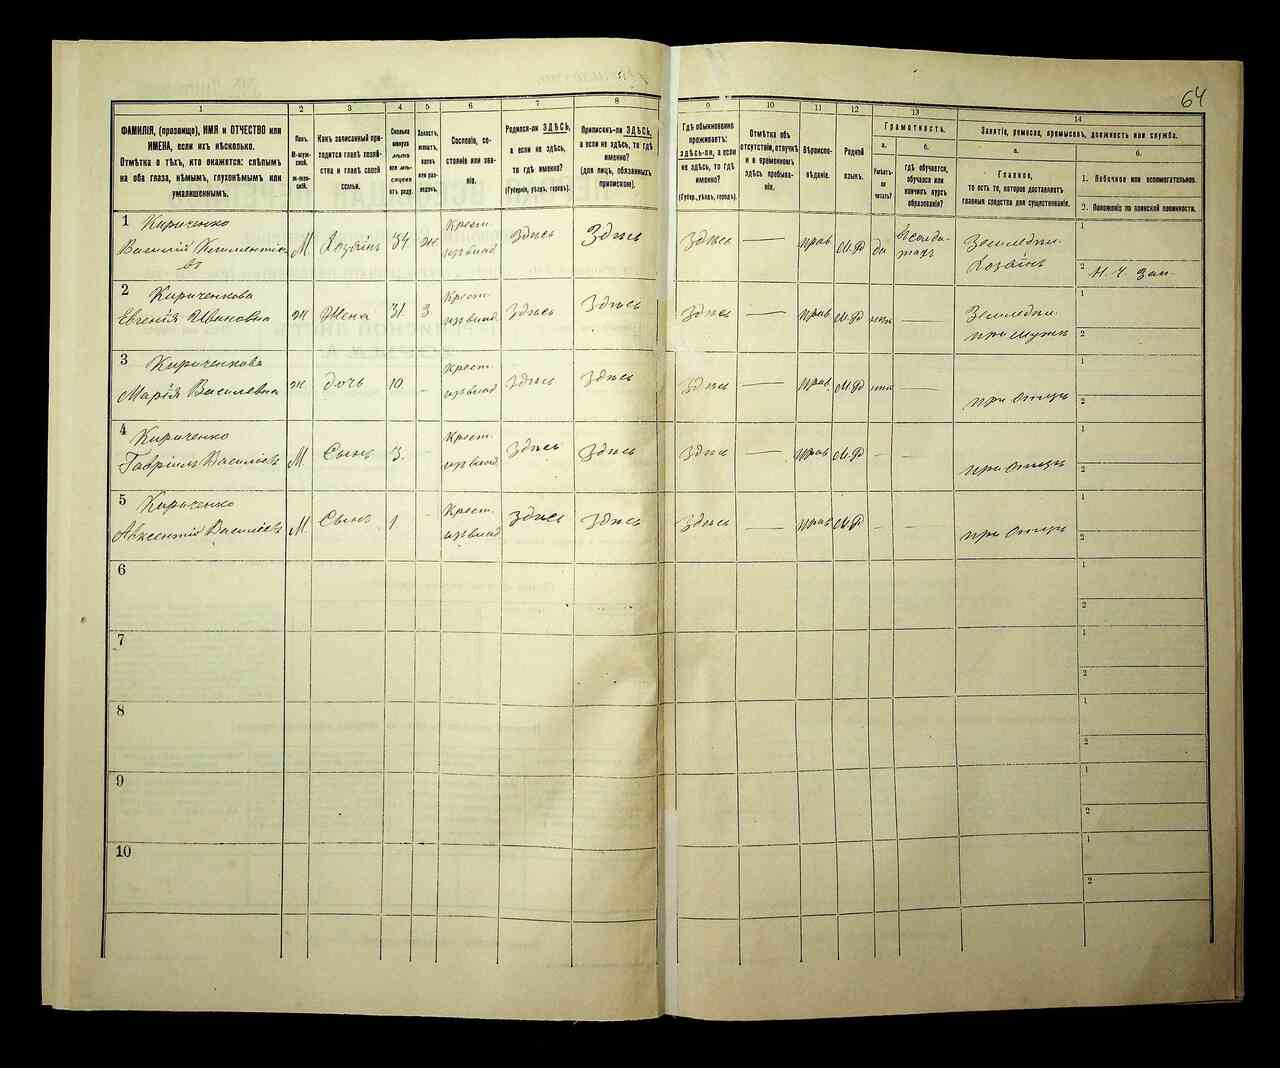 64
1
2
3
4
5
6
7
8
9
10
11
12
13
14
ФАМИЛІЯ, (прозвище), ИМЯ и ОТЧЕСТВО или
ИМЕНА, если ихъ нѣсколько.
Отмѣтка о тѣхъ, кто окажется: слѣпымъ
на оба глаза, нѣмымъ, глухонѣмымъ или
умалишеннымъ.
Полъ.
М-муж-
ской.
Ж-жен-
скій.
Какъ записанный при-
ходится главѣ хозяй-
ства и главѣ своей
семьи.
Сколько
минуло
лѣтъ
или мѣ-
сяцевъ
отъ роду.
Холостъ,
женатъ,
вдовъ
или раз-
веденъ.
Сословіе, со-
стояніе или зва-
ніе.
Родился-ли ЗДѢСЬ,
а если не здѣсь,
то гдѣ именно?
(Губернія, уѣздъ, городъ).
Приписанъ-ли ЗДѢСЬ,
а если не здѣсь, то гдѣ
именно?
(для лицъ, обязанныхъ
припискою).
Гдѣ обыкновенно
проживаетъ:
здѣсь-ли, а если
не здѣсь, то гдѣ
именно?
(Губер., уѣздъ, городъ).
Отмѣтка объ
отсутствіи, отлучкѣ
и о временномъ
здѣсь пребыва-
ніи.
Вѣроиспо-
вѣданіе.
Родной
языкъ.
Грамотность.
а.
б.
Умѣетъ-
ли
читать?
гдѣ обучается,
обучался или
кончилъ курсъ
образованія?
Занятіе, ремесло, промыселъ, должность или служба.
а.
б.
Главное,
то есть то, которое доставляетъ
главныя средства для существованія.
1. Побочное или вспомогательное.
2. Положеніе по воинской повинности.
1 Кириченко
Василій Климентіев
въ
М Хозяинъ 34 ж Крест. Здѣсь Здѣсь Здѣсь — прав. М.Р да въ солда-
тахъ
Земледѣл.
Хозяинъ
1
2 Н. Ч. Зап.
2 Кириченкова
Евгенія Ивановна ж Жена 31. З. Крест. Здѣсь Здѣсь Здѣсь — прав. М.Р нѣтъ Земледѣл.
при мужѣ
1
2
3 Кириченкова
Марія Василевна ж дочь 10. – Крест. Здѣсь Здѣсь Здѣсь — прав. М.Р нѣтъ – при отцѣ
1
2
4 Кириченко
Гавріилъ Василіев М Сынъ 3. – Крест. Здѣсь Здѣсь Здѣсь — прав. М.Р – – при отцѣ
1
2
5 Кириченко
Авксентій Василіев М Сынъ 1 – Крест. Здѣсь Здѣсь Здѣсь — прав. М.Р – – при отцѣ
1
2
6
1
2
7
1
2
8
1
2
9
1
2
10
1
2